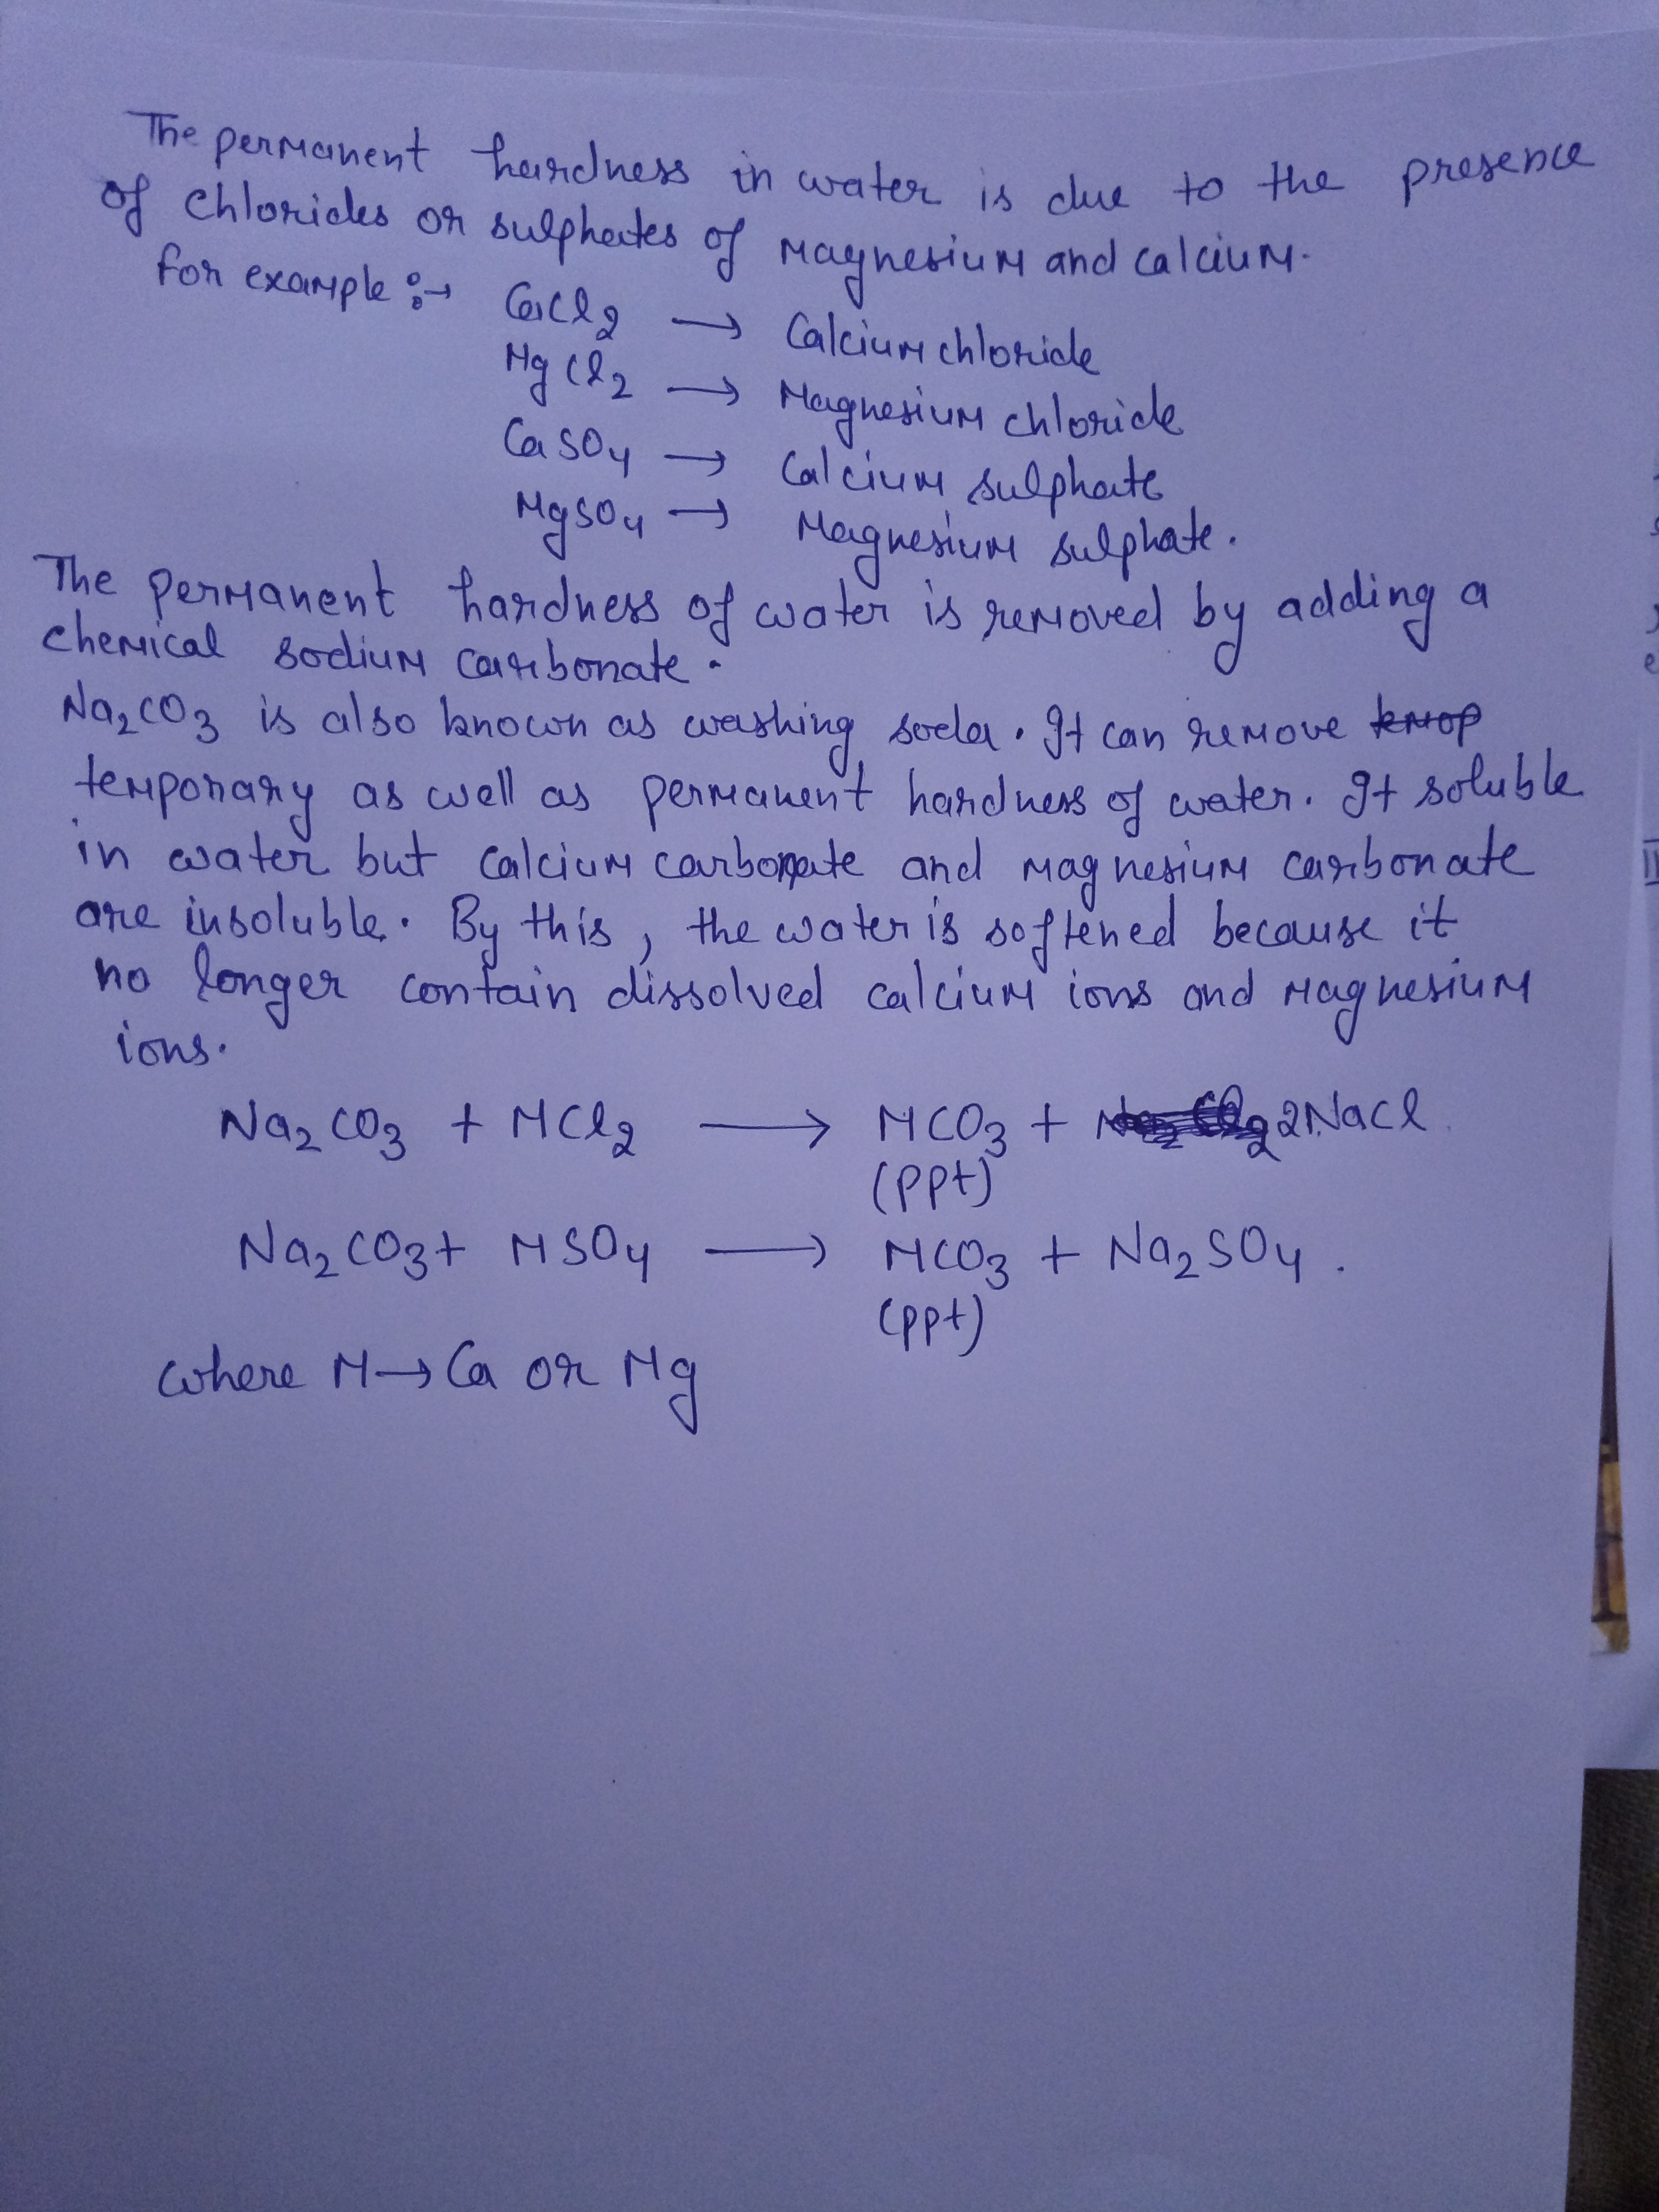 The permanent hardness in water is due to the presence
of chlorides or sulphates of magnesium and calcium.
for example :→ CaCl2 → Calcium chloride
MgCl2 → Magnesium chloride
CaSO4 → Calcium sulphate
MgSO4 → Magnesium sulphate.
The permanent hardness of water is removed by adding a
chemical sodium carbonate.
Na2CO3 is also known as washing soda. It can remove
temporary as well as permanent hardness of water. It soluble
in water but calcium carbonate and magnesium carbonate
are insoluble. By this, the water is softened because it
no longer contain dissolved calcium ions and magnesium
ions.
Na2CO3 + MCl2 → MCO3 + 2NaCl
(ppt)
Na2CO3 + MSO4 → MCO3 + Na2SO4.
(ppt)
where M → Ca or Mg